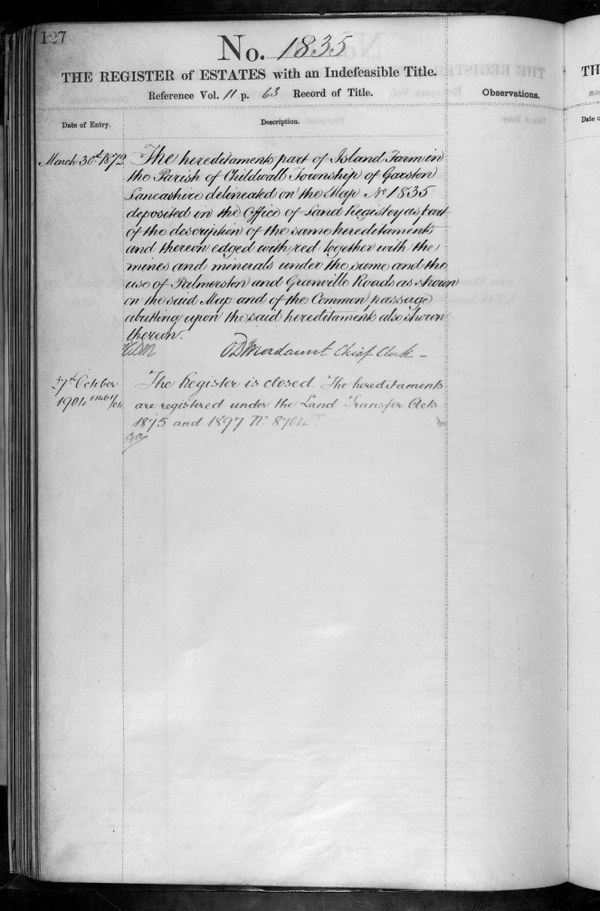 127
No. 1835
THE REGISTER of ESTATES with an Indefeasible Title.
Reference Vol. 11 p. 63 Record of Title.
Observations.
Date of Entry.
Description.
March 30th 1872
The hereditaments part of Island Farm in
the Parish of Childwall Township of Garston
Lancashire delineated on the Map No 1835
deposited in the Office of Land Registry as part
of the description of the same hereditaments
and thereon edged with red together with the
mines and minerals under the same and the
use of Palmerston and Granville Roads as shown
on the said Map and of the Common passage
abutting upon the said hereditaments also shown
thereon.
Mordaunt Chief Clerk
October
1904
The Register is closed. The hereditaments
are registered under the Land Transfer Acts
1875 and 1897 No
TH
Date o